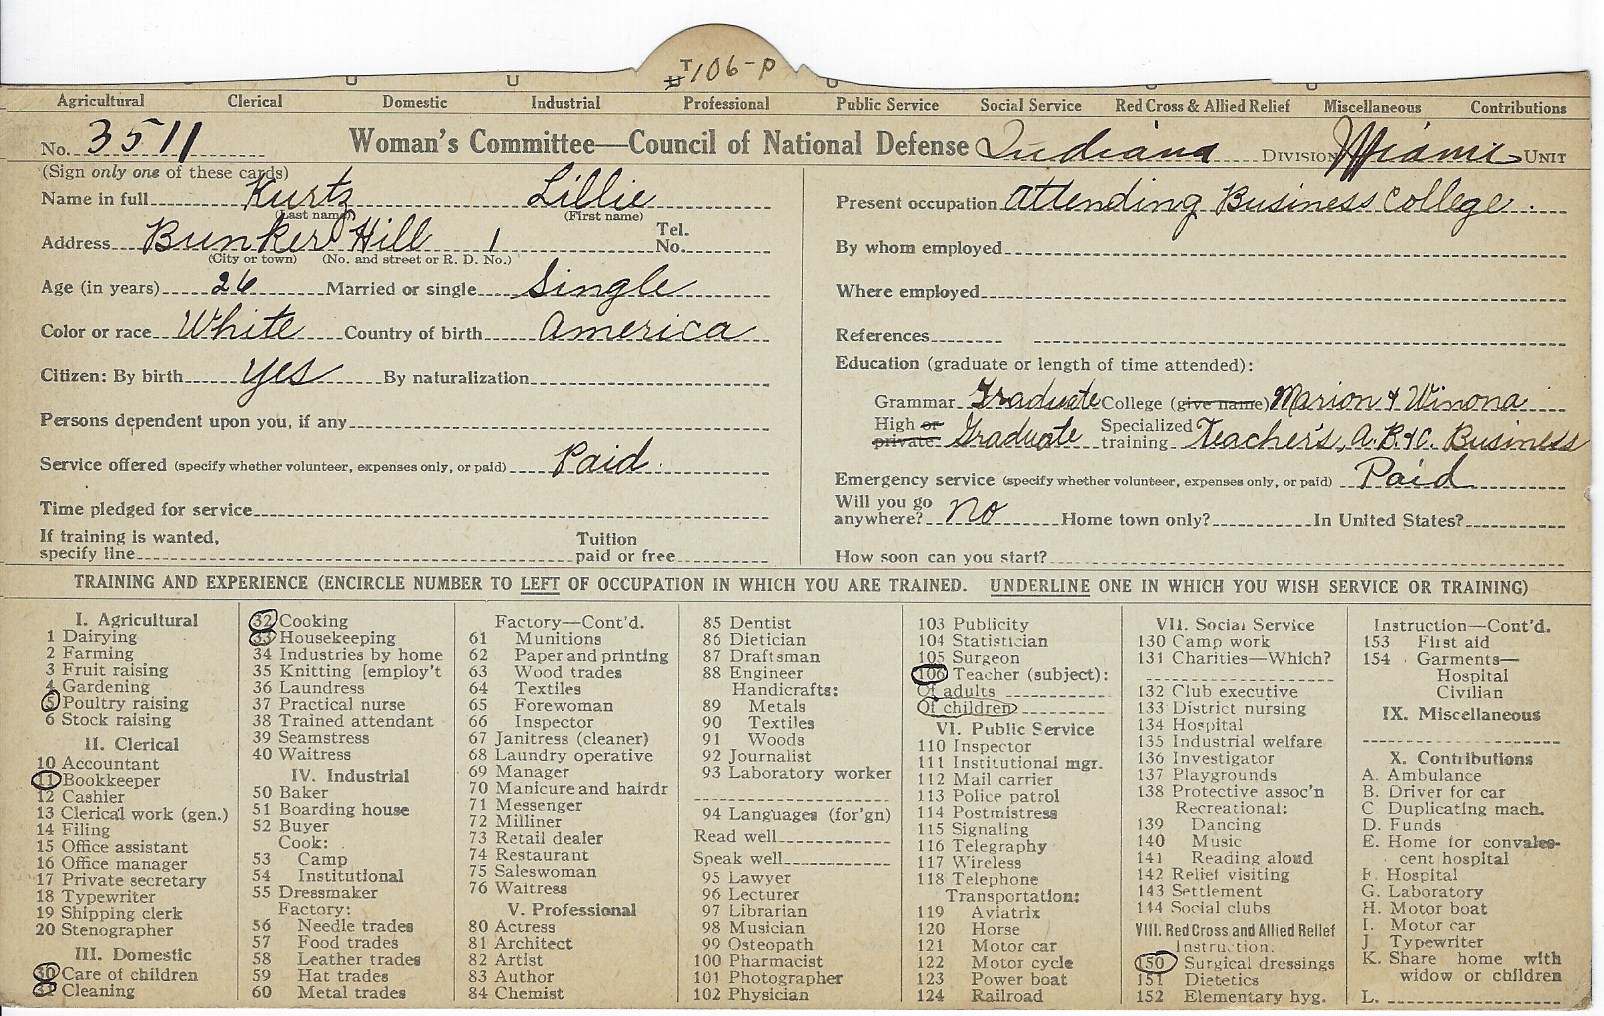 T106-P
Agricultural Clerical Domestic Industrial Professional Public Service Social Service Red Cross & Allied Relief Miscellaneous Contributions
No. 3511 Woman's Committee—Council of National Defense Indiana Division Miami Unit
(Sign only one of these cards)
Name in full Kurtz Lillie
(Last name) (First name)
Address Bunker Hill 1 Tel. No.
(City or town) (No. and street or R. D. No.)
Age (in years) 26 Married or single Single
Color or race White Country of birth America
Citizen: By birth yes By naturalization
Persons dependent upon you, if any
Service offered (specify whether volunteer, expenses only, or paid) Paid.
Time pledged for service
If training is wanted, specify line Tuition paid or free
Present occupation Attending Business College.
By whom employed
Where employed
References
Education (graduate or length of time attended):
Grammar Graduate College (give name) Marion & Winona
High or private: Graduate Specialized training Teacher's, A.B.&C. Business
Emergency service (specify whether volunteer, expenses only, or paid) Paid
Will you go anywhere? No Home town only? In United States?
How soon can you start?
TRAINING AND EXPERIENCE (ENCIRCLE NUMBER TO LEFT OF OCCUPATION IN WHICH YOU ARE TRAINED. UNDERLINE ONE IN WHICH YOU WISH SERVICE OR TRAINING)
I. Agricultural
1 Dairying
2 Farming
3 Fruit raising
4 Gardening
5 Poultry raising
6 Stock raising
II. Clerical
10 Accountant
11 Bookkeeper
12 Cashier
13 Clerical work (gen.)
14 Filing
15 Office assistant
16 Office manager
17 Private secretary
18 Typewriter
19 Shipping clerk
20 Stenographer
III. Domestic
30 Care of children
31 Cleaning
32 Cooking
33 Housekeeping
34 Industries by home
35 Knitting [employ't
36 Laundress
37 Practical nurse
38 Trained attendant
39 Seamstress
40 Waitress
IV. Industrial
50 Baker
51 Boarding house
52 Buyer
Cook:
53 Camp
54 Institutional
55 Dressmaker
Factory:
56 Needle trades
57 Food trades
58 Leather trades
59 Hat trades
60 Metal trades
Factory—Cont'd.
61 Munitions
62 Paper and printing
63 Wood trades
64 Textiles
65 Forewoman
66 Inspector
67 Janitress (cleaner)
68 Laundry operative
69 Manager
70 Manicure and hairdr
71 Messenger
72 Milliner
73 Retail dealer
74 Restaurant
75 Saleswoman
76 Waitress
V. Professional
80 Actress
81 Architect
82 Artist
83 Author
84 Chemist
85 Dentist
86 Dietician
87 Draftsman
88 Engineer
Handicrafts:
89 Metals
90 Textiles
91 Woods
92 Journalist
93 Laboratory worker
94 Languages (for'gn)
Read well
Speak well
95 Lawyer
96 Lecturer
97 Librarian
98 Musician
99 Osteopath
100 Pharmacist
101 Photographer
102 Physician
103 Publicity
104 Statistician
105 Surgeon
106 Teacher (subject):
Of adults
Of children
VI. Public Service
110 Inspector
111 Institutional mgr.
112 Mail carrier
113 Police patrol
114 Postmistress
115 Signaling
116 Telegraphy
117 Wireless
118 Telephone
Transportation:
119 Aviatrix
120 Horse
121 Motor car
122 Motor cycle
123 Power boat
124 Railroad
VII. Social Service
130 Camp work
131 Charities—Which?
132 Club executive
133 District nursing
134 Hospital
135 Industrial welfare
136 Investigator
137 Playgrounds
138 Protective assoc'n
Recreational:
139 Dancing
140 Music
141 Reading aloud
142 Relief visiting
143 Settlement
144 Social clubs
VIII. Red Cross and Allied Relief
Instruction:
150 Surgical dressings
151 Dietetics
152 Elementary hyg.
Instruction—Cont'd.
153 First aid
154 Garments—
Hospital
Civilian
IX. Miscellaneous
X. Contributions
A. Ambulance
B. Driver for car
C Duplicating mach.
D. Funds
E. Home for convales-
cent hospital
F. Hospital
G. Laboratory
H. Motor boat
I. Motor car
J Typewriter
K. Share home with
widow or children
L.